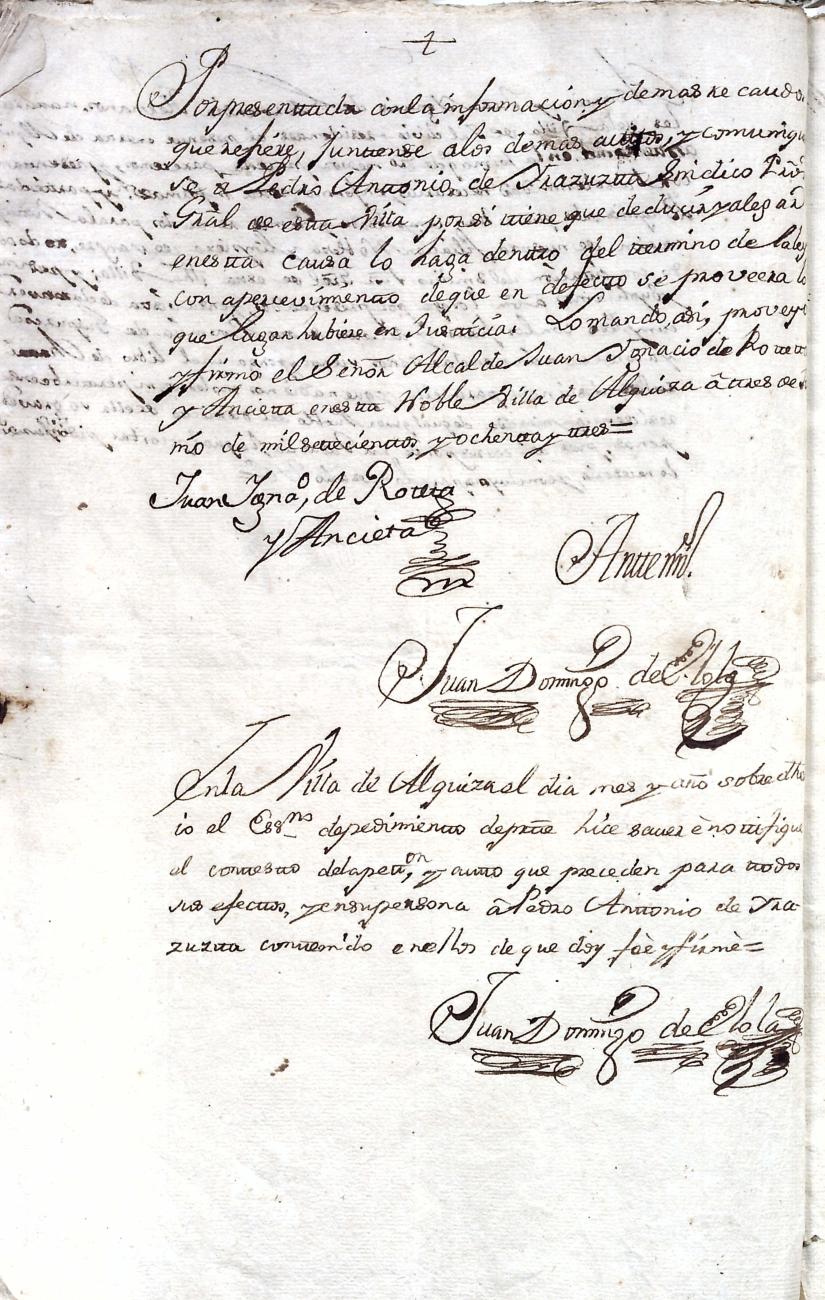 Porpresentada conla informacion y demas recaudo
que refiere, Juntense alos demas autos, y comuniqu
se a Pedro Antonio, de Yrazuzta Sindico Pror̃
Gral de esta Villa por si tiene que deducir y alegar
enesta causa lo haga dentro del termino de laley
con apercevimiento deque en defecto se proveera lo
que lugar hubiere en Justicia. Lo mando, asi, proveyó
y firmó el Señor Alcalde Juan Ygnacio de Roteta
y Ancieta enesta Noble Villa de Alquiza à tres de
mo de mil setecientos, y ochenta y tres=
Juan Ygnao, de Roteta
y Ancieta
Antemi.
Juan Domingo de Elola
Enla Villa de Alquiza el dia mes y año sobre dho
io el Essno depedimiento deprte hice saver è notifique
el contesto delapeton, y auto que preceden para todos
sus efectos, y ensupersona à Pedro Antonio de Yra-
zuzta contenido enellos de que doy feè y firmè=
Juan Domingo de Elola